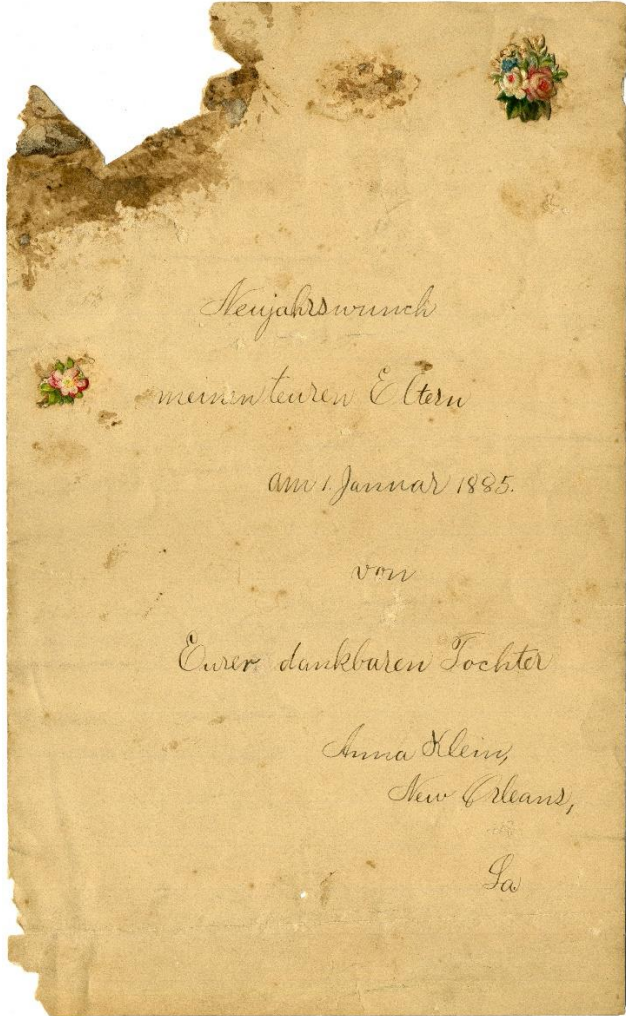 Neujahrswunch
meinen teuren Eltern
am 1. Januar 1885.
von
Eurer dankbaren Tochter
Anna Klein,
New Orleans,
La